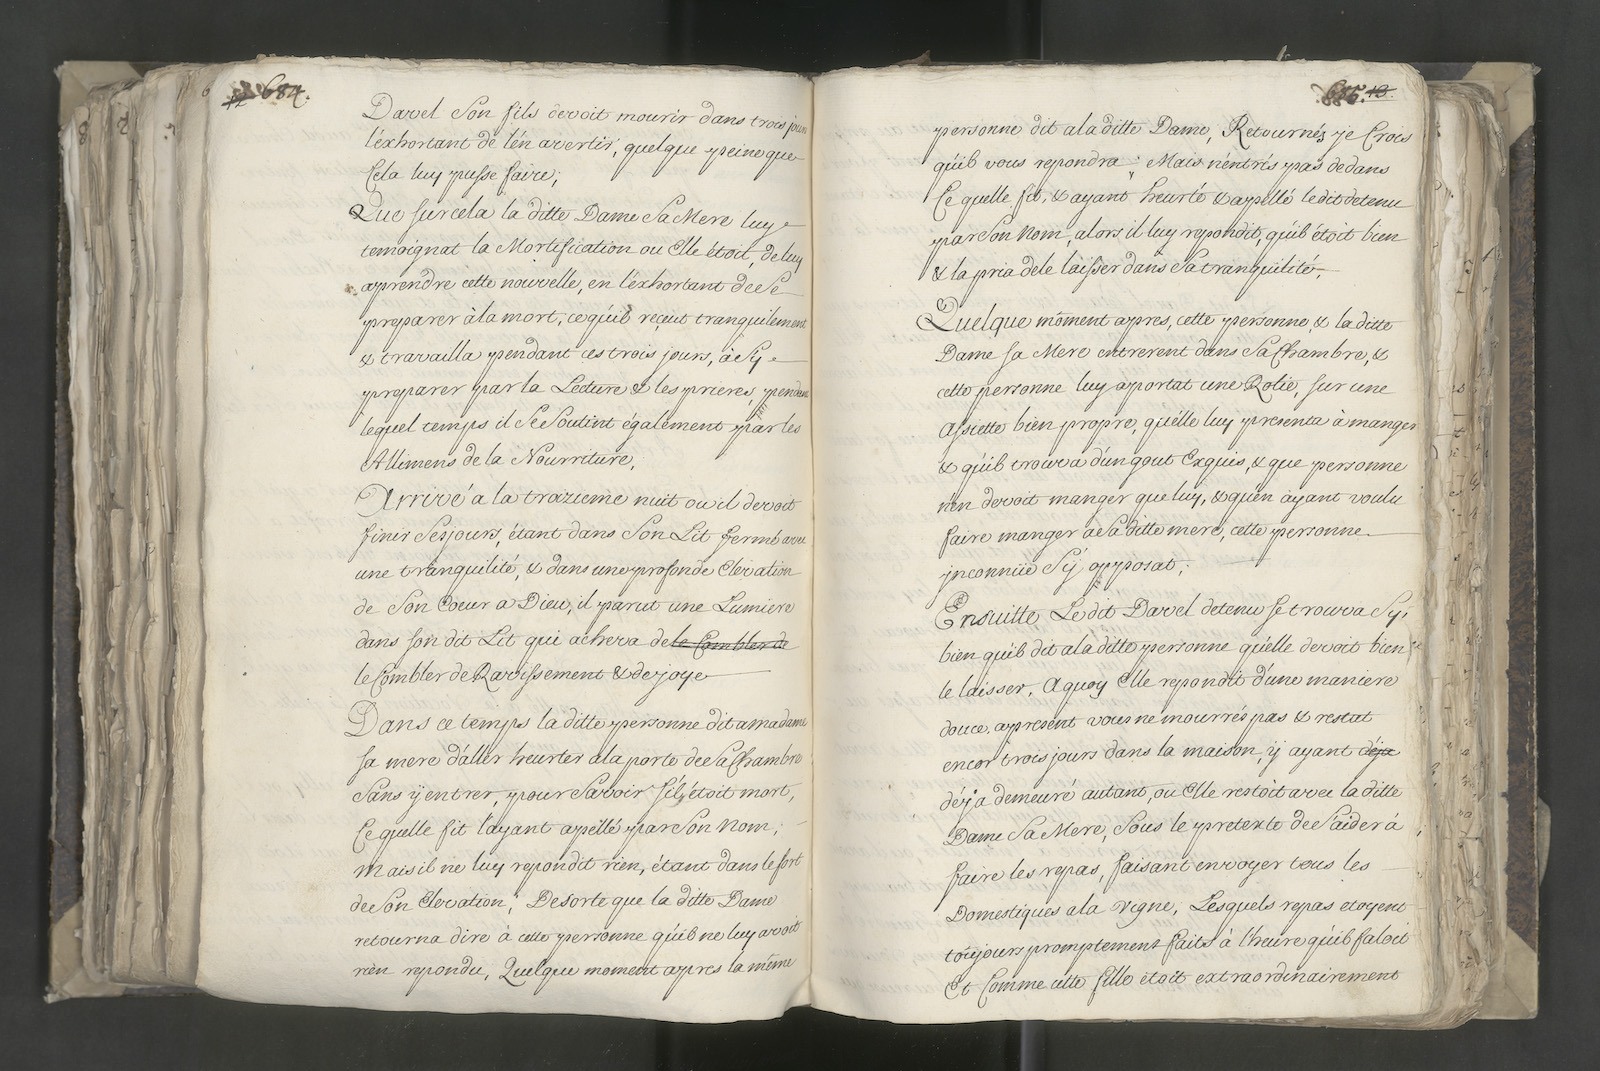 684.
Davel Son fils devoit mourir dans trois jours
l'éxhortant de l'én avertir, quelque peine que
Cela luy pusse faire;
Que sur cela la ditte Dame Sa Mere luy
temoignat la Mortification ou Elle êtoit, de luy
aprendre cette nouvelle, en l'éxhortant de Se
preparer à la mort, ce qu'il reçeut tranquilement
& travailla pendant ces trois jours, à Sy
preparer par la Lecture & les prieres, pendant
lequel temps il Se Soutint également par les
Allimens de la Nourriture;
Arrivé a la trazieme nuit ou il devoit
finir Ses jours, étant dans Son Lit fermé avec
une tranquilité, & dans une profonde Elevation
de Son Coeur a Dieu, il parut une Lumiere
dans son dit Lit qui acheva de le Combler de
le Combler de Ravissement & de joye
Dans ce temps la ditte personne dit a madame
sa mere d'aller heurter a la porte de Sa Chambre
Sans ÿ entrer, pour Savoir S'il étoit mort,
Ce quelle fit l'ayant apéllé par Son Nom;
Mais il ne luy repondit rien, étant dans le fort
de Son Elevation; Desorte que la ditte Dame
retourna dire à cette personne qu'il ne luy avoit
rien repondu, Quelque moment apres la même
685. 13.
personne dit a la ditte Dame, Retournés je Crois
qu'il vous repondra; Mais n'entrés pas dedans
Ce quelle fit, & ayant heurté & apellé le dit detenu
par Son Nom, alors il luy repondit, qu'il étoit bien
& la pria de le laisser dans Sa tranquilité.
Quelque moment apres, cette personne, & la ditte
Dame sa Mere entrerent dans Sa Chambre, &
cette personne luy aportat une Rotie, sur une
Assiette bien propre, qu'elle luy presenta à manger
& qu'il trouva d'un gout Exquis, & que personne
n'en devoit manger que luy, & qu'en ayant voulu
faire manger a Sa ditte mere, cette personne
jnconnüe S'ÿ opposat;
Ensuitte Le dit Davel detenu se trouva Sy
bien qu'il dit a la ditte personne qu'elle devoit bien
le laisser, A quoy Elle repondit d'une maniere
douce, apresent vous ne mourrés pas & restat
encor trois jours dans la maison, ÿ ayant déja
déja demeuré autant, ou Elle restoit avec la ditte
Dame Sa Mere, Sous le pretexte de S'aider à
faire les repas, faisant envoyer tous les
Domestiques a la vigne, Lesquels repas etoyent
toujours promptement faits à l'heure qu'il faloit
Et Comme cette fille étoit extraordinairement